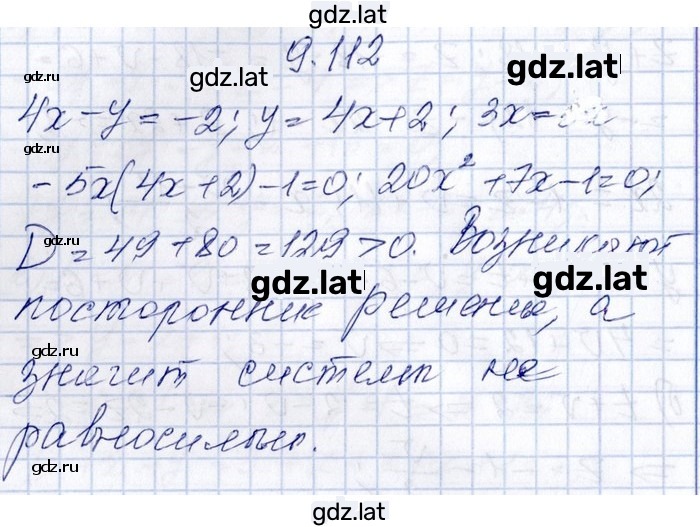 gdz.lat
9.112
gdz.ru
gdz.lat
gdz.lat
4x-y=-2; y=4x+2; 3x=
gdz.ru
-5x(4x+2)-1=0; 20x²+7x-1=0;
D=49+80=129>0. Возникают
gdz.lat
gdz.lat
посторонние решения, а
gdz.ru
значит системы не
равносильны.
gdz.ru
gdz.lat